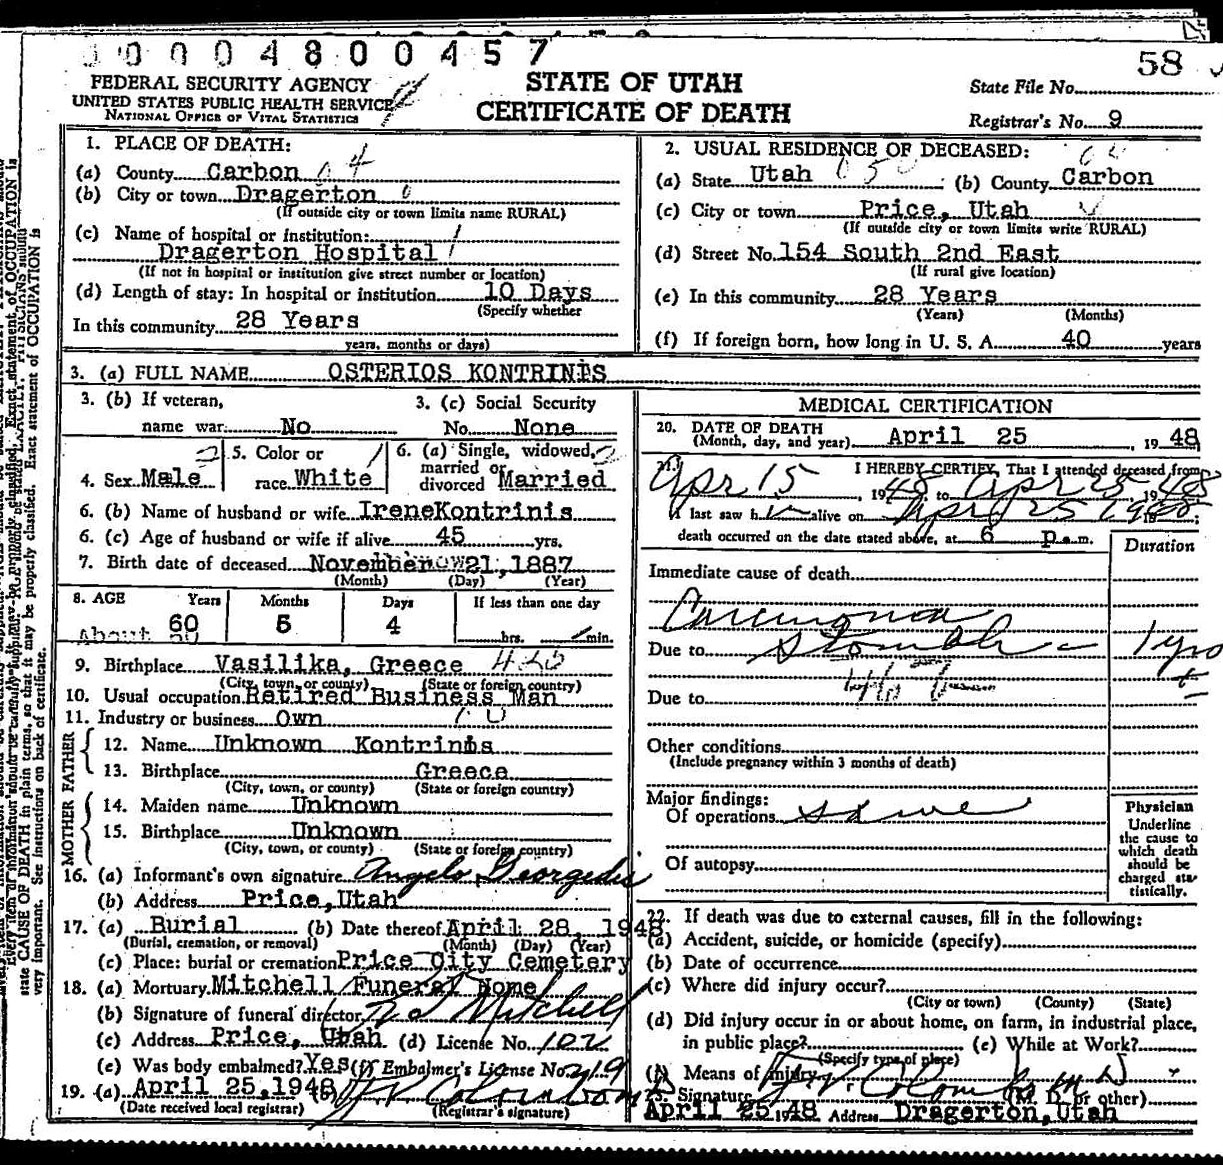 0004800457
58
FEDERAL SECURITY AGENCY
UNITED STATES PUBLIC HEALTH SERVICE
NATIONAL OFFICE OF VITAL STATISTICS
STATE OF UTAH
CERTIFICATE OF DEATH
State File No.
Registrar's No. 9
1. PLACE OF DEATH:
(a) County Carbon 04
(b) City or town Dragerton
(If outside city or town limits name RURAL)
(c) Name of hospital or institution:
Dragerton Hospital
(If not in hospital or institution give street number or location)
(d) Length of stay: In hospital or institution 10 Days
(Specify whether
In this community 28 Years
years, months or days)
2. USUAL RESIDENCE OF DECEASED:
(a) State Utah (b) County Carbon
(c) City or town Price, Utah
(If outside city or town limits write RURAL)
(d) Street No. 154 South 2nd East
(If rural give location)
(e) In this community 28 Years
(Years) (Months)
(f) If foreign born, how long in U. S. A. 40 years
3. (a) FULL NAME OSTERIOS KONTRINIS
3. (b) If veteran,
name war No
3. (c) Social Security
No. None
4. Sex Male
5. Color or
race White
6. (a) Single, widowed,
married or
divorced Married
6. (b) Name of husband or wife IreneKontrinis
6. (c) Age of husband or wife if alive 45 yrs.
7. Birth date of deceased November 21, 1887
(Month) (Day) (Year)
8. AGE Years Months Days If less than one day
60 5 4 hrs. min.
9. Birthplace Vasilika, Greece
(City, town, or county) (State or foreign country)
10. Usual occupation Retired Business Man
11. Industry or business Own
FATHER
12. Name Unknown Kontrinis
13. Birthplace Greece
(City, town, or county) (State or foreign country)
MOTHER
14. Maiden name Unknown
15. Birthplace Unknown
(City, town, or county) (State or foreign country)
16. (a) Informant's own signature Angelo Georgedis
(b) Address Price, Utah
17. (a) Burial (b) Date thereof April 28, 1948
(Burial, cremation, or removal) (Month) (Day) (Year)
(c) Place: burial or cremation Price City Cemetery
18. (a) Mortuary Mitchell Funeral Home
(b) Signature of funeral director Mitchell
(c) Address Price, Utah (d) License No. 102
(e) Was body embalmed? Yes (f) Embalmer's License No. 219
19. (a) April 25, 1948 (b) Colombo
(Date received local registrar) (Registrar's signature)
MEDICAL CERTIFICATION
20. DATE OF DEATH
(Month, day, and year) April 25, 1948
21. I HEREBY CERTIFY, That I attended deceased from
Apr 15, 1948 to Apr 25 1948
I last saw him alive on Apr 25 1948;
death occurred on the date stated above, at 6 p.m.
Duration
Immediate cause of death
Carcinoma
Due to Stomach 1 yr
Due to
Other conditions
(Include pregnancy within 3 months of death)
Major findings:
Of operations same
Of autopsy
Physician
Underline
the cause to
which death
should be
charged sta-
tistically.
22. If death was due to external causes, fill in the following:
(a) Accident, suicide, or homicide (specify)
(b) Date of occurrence
(c) Where did injury occur?
(City or town) (County) (State)
(d) Did injury occur in or about home, on farm, in industrial place,
in public place? (e) While at Work?
(Specify type of place)
(f) Means of injury
23. Signature Colombo M D
(M. D. or other)
April 25 1948 Address Dragerton, Utah